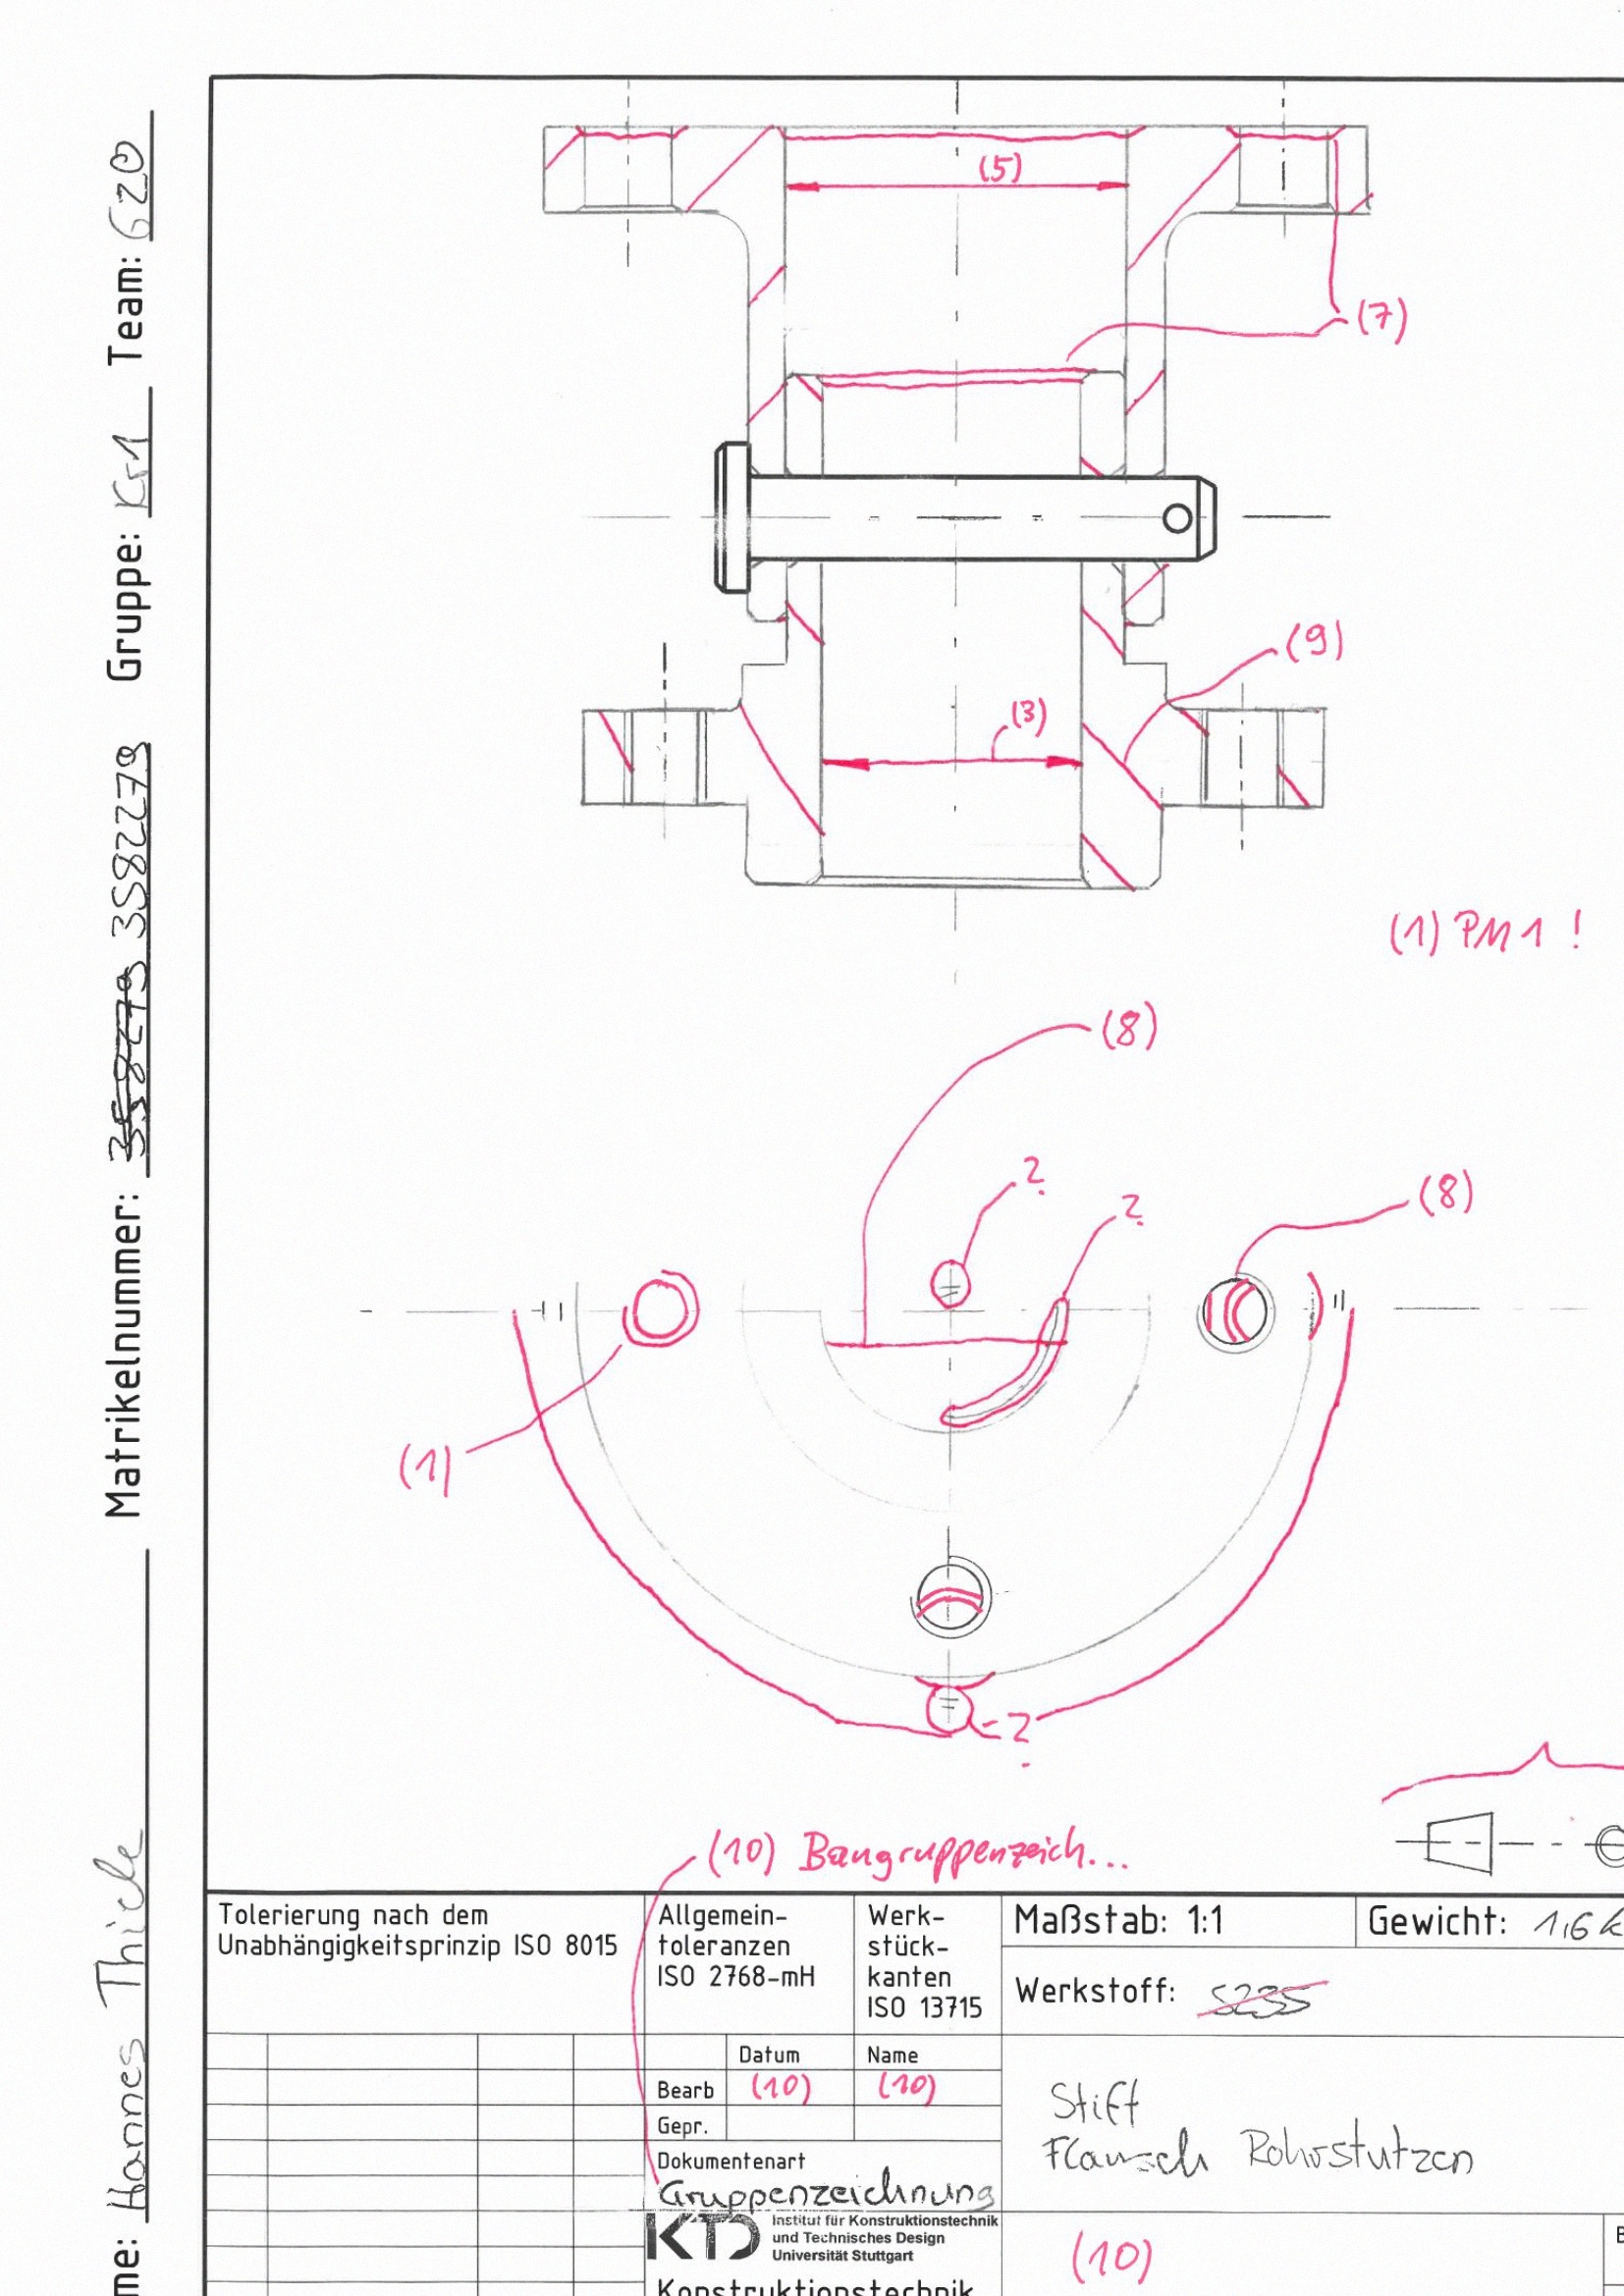 (5)
(7)
(9)
(3)
(1) PM1 !
(8)
?
?
(8)
(1)
?
(10) Baugruppenzeich...
Name: Hannes Thiele Matrikelnummer: 3582279 Gruppe: Ks1 Team: G20
Tolerierung nach dem
Unabhängigkeitsprinzip ISO 8015
Allgemein-
toleranzen
ISO 2768-mH
Werk-
stück-
kanten
ISO 13715
Maßstab: 1:1
Gewicht: 1,6 k
Werkstoff: S235
Datum Name
Bearb (10) (10)
Gepr.
Dokumentenart
Gruppenzeichnung
Stift
Flansch Rohrstutzen
KTD
Institut für Konstruktionstechnik
und Technisches Design
Universität Stuttgart
Konstruktionstechnik
(10)